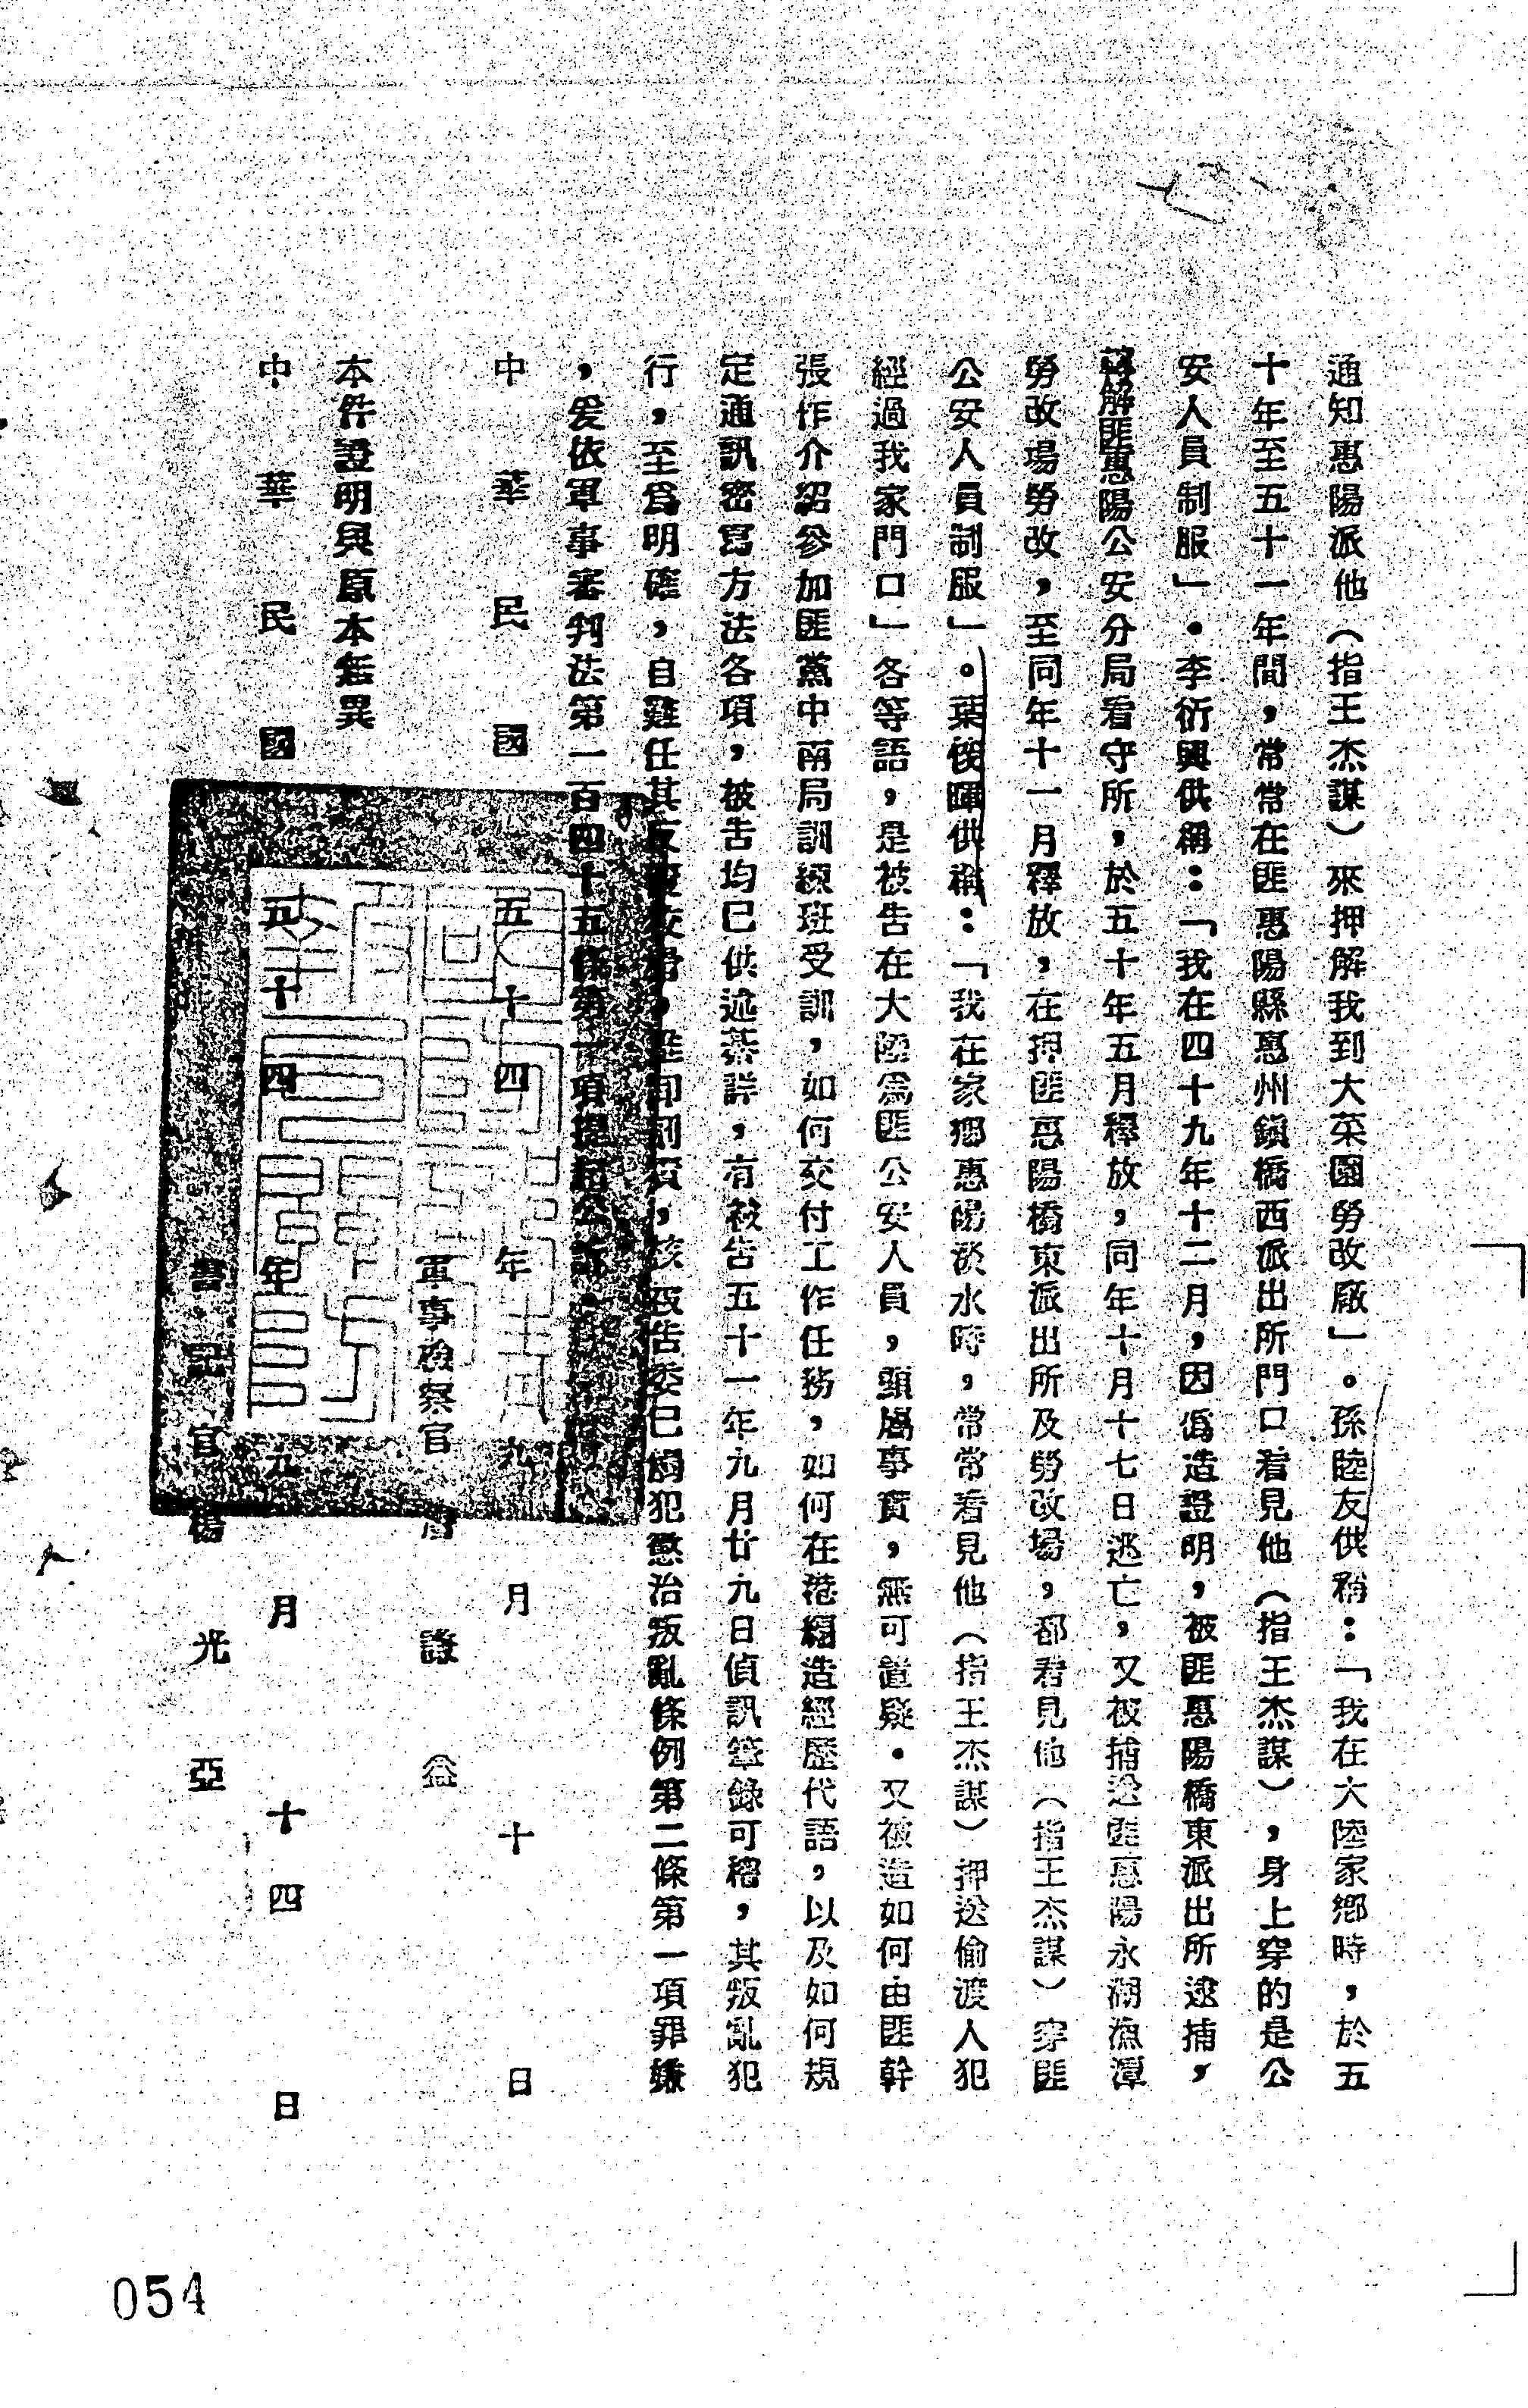 通知惠陽派他（指王杰謀）來押解我到大菜園勞改廠」。孫陸友供稱：「我在大陸家鄉時，於五
十年至五十一年間，常常在匪惠陽縣惠州鎮橋西派出所門口看見他（指王杰謀），身上穿的是公
安人員制服」．李衍興供稱：「我在四十九年十二月，因偽造證明，被匪惠陽橋東派出所逮捕，
解匪惠陽公安分局看守所，於五十年五月釋放，同年十月十七日逃亡，又被捕送匪惠陽永湖漁潭
勞改場勞改，至同年十一月釋放，在押匪惠陽橋東派出所及勞改場，都看見他（指王杰謀）穿匪
公安人員制服」。葉俊暉供稱：「我在家鄉惠陽淡水時，常常看見他（指王杰謀）押送偷渡人犯
經過我家門口」各等語，是被告在大陸為匪公安人員，顯屬事實，無可置疑．又被造如何由匪幹
張作介紹參加匪黨中南局訓練班受訓，如何交付工作任務，如何在港編造經歷代語，以及如何規
定通訊密寫方法各項，被告均已供述綦詳，有被告五十一年九月廿九日偵訊筆錄可稽，其叛亂犯
行，至為明確，自難任其反覆狡滑，，核被告委已觸犯懲治叛亂條例第二條第一項罪嫌
，爰依軍事審判法第一百四十五條第一項提起公訴．
中華民國五十四年九月十日
軍事檢察官
本件證明與原本無異
中華民國五十四年九月十四日
書記官楊光亞
054